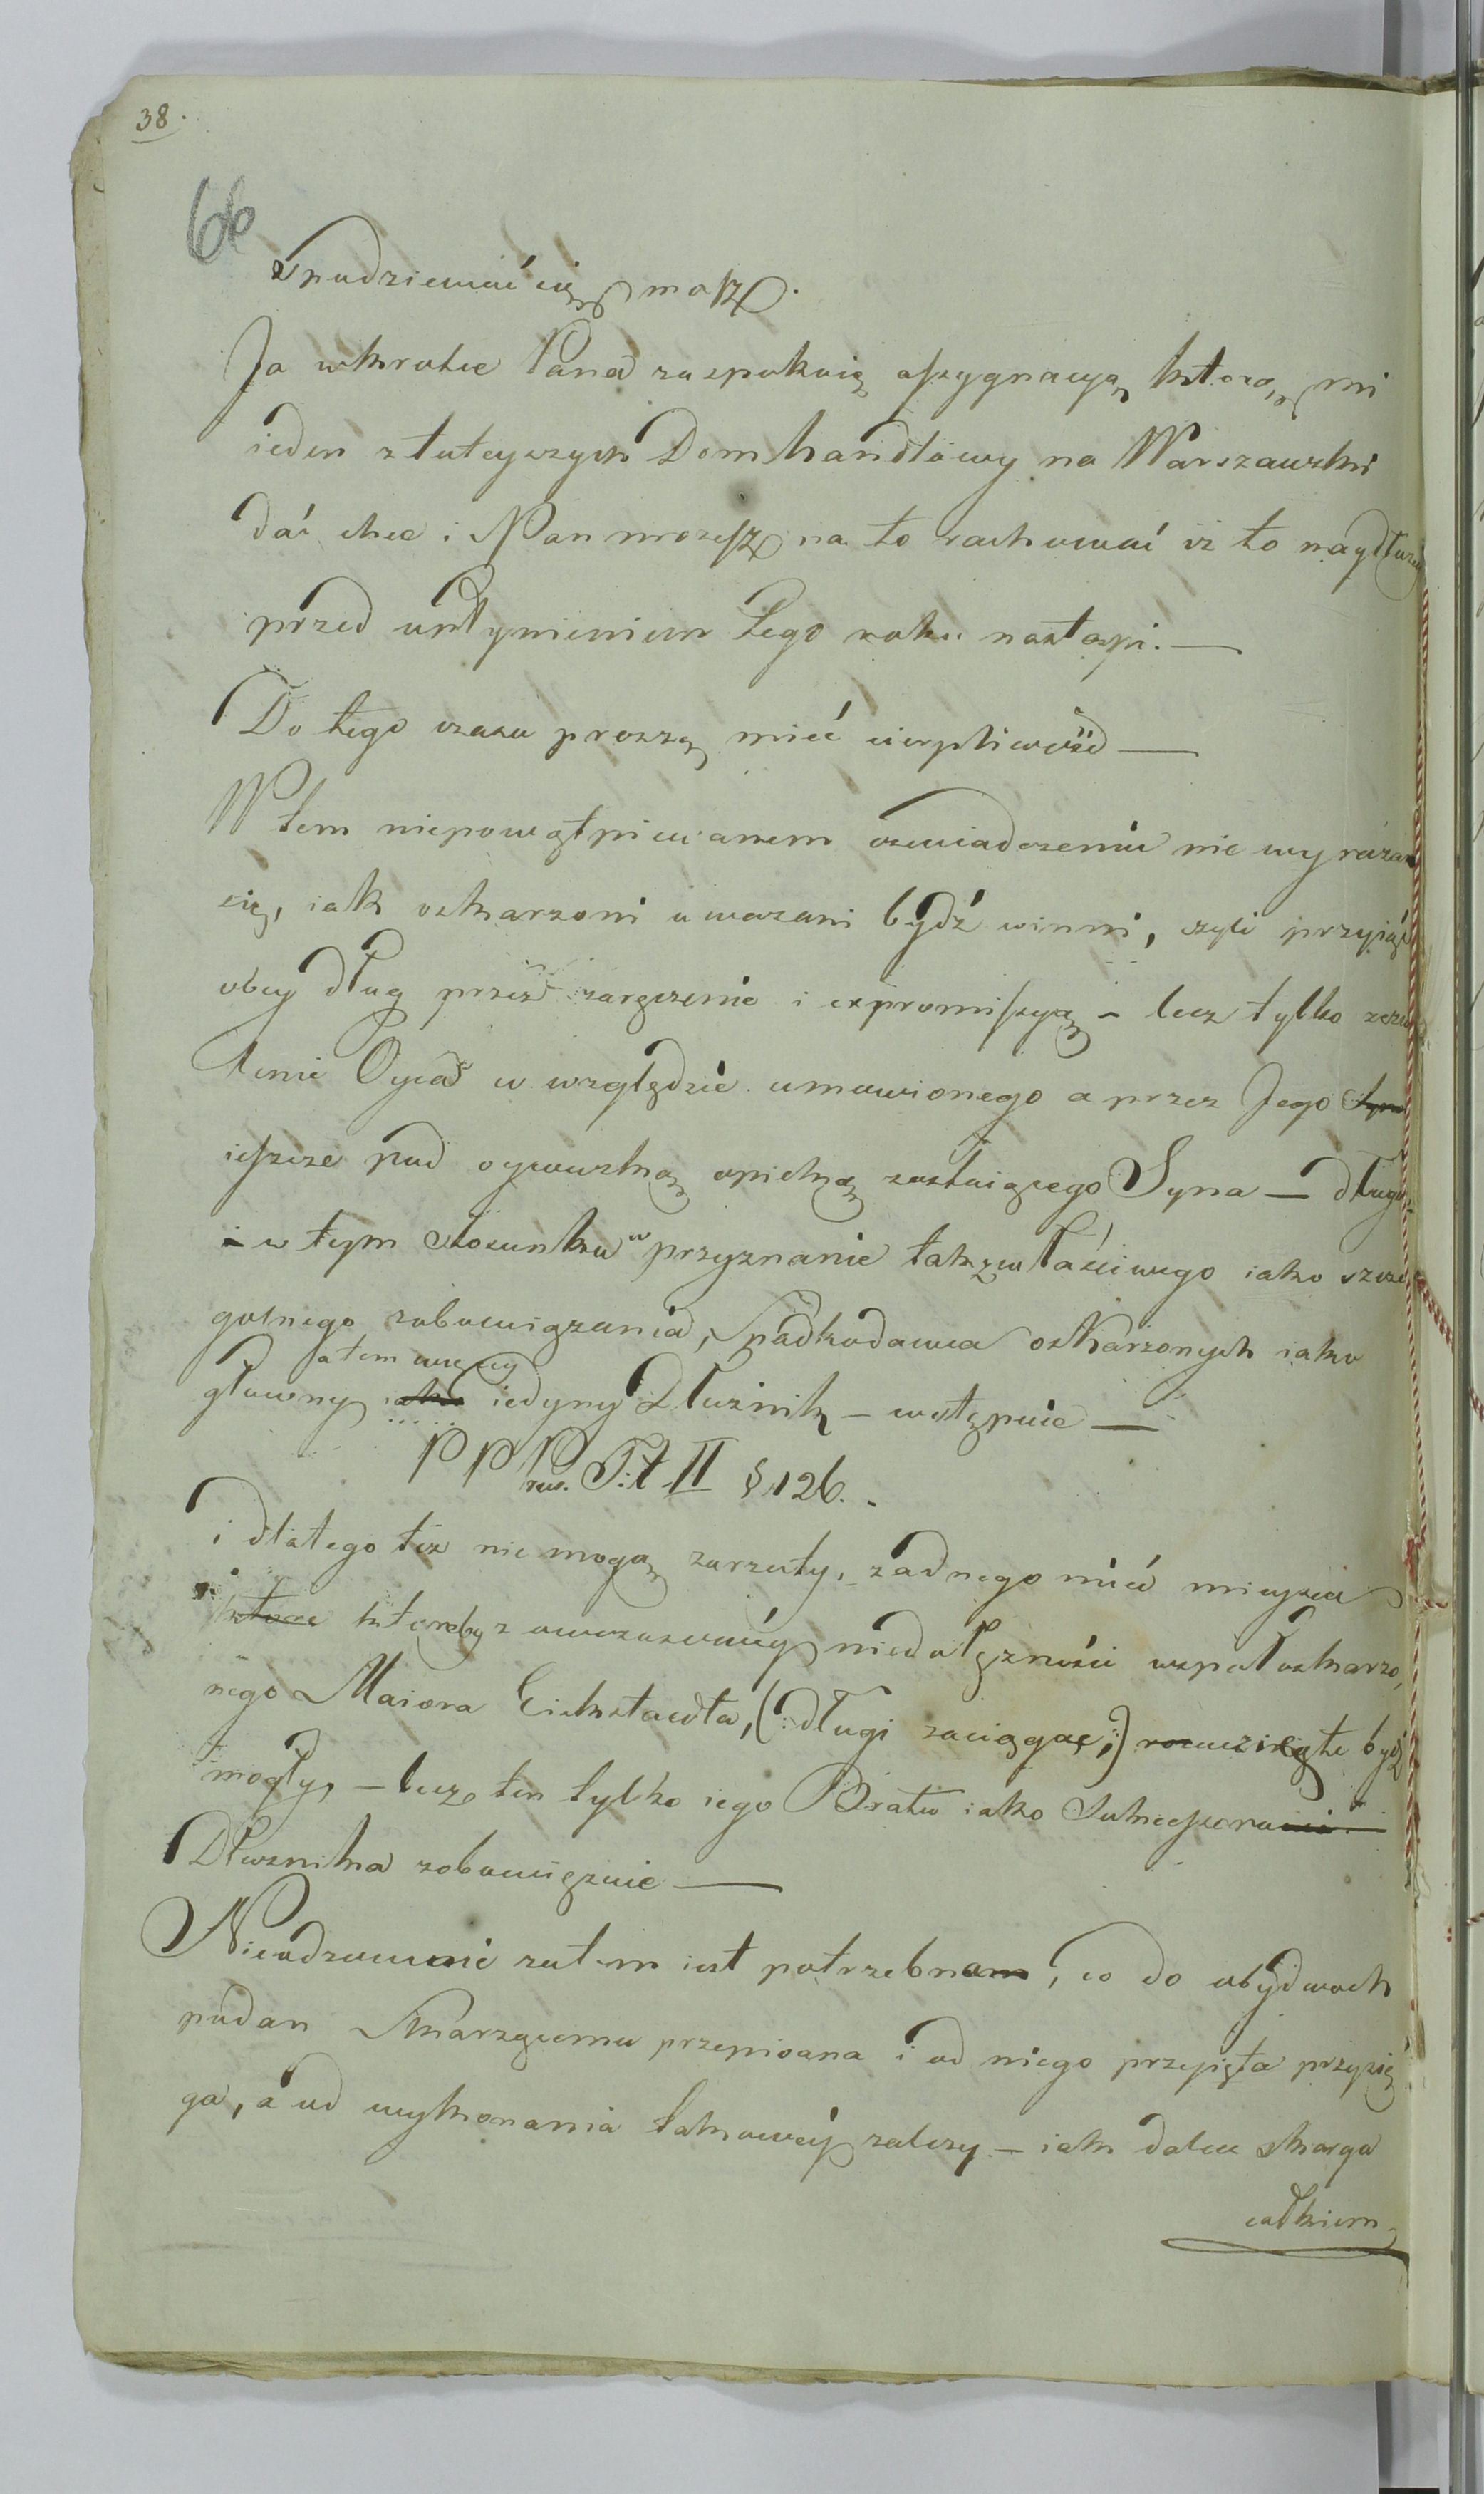 38.
66
spodziewać się masz.
Ja wkrotce Pana zaspokoię assygnacyą którą mi
ieden z tuteyszych Dom handlowy na Warszawski
dać chce i Pan mozesz na to rachować iz to naydłuzey
przed upłynieniem tego roku nastąpi. —
Do tego czasu proszę mieć cierpliwość —
W tem niepowątpiewanem oswiadczeniu nie wyraza
się, iak oskarzoni uwazani bydź winni, czyli przyiąć
obcy dług przez zaręczenie i expromissyą – lecz tylko zezw
lenie Oyca w względzie umowionego a przez Jego Syna
ieszcze pod oycowską opieką zostaiącego Syna — długu
i w tym stosunku w przyznanie tak właściwego iako szcze
gulnego zobowiązania, Spadkodawca oskarzonych iako
atem więcey
głowny iako iedyny Dłuźnik – wstępuie —
P P P Tit II § 126.
i dlatego tez nie mogą zarzuty, zadnego mieć mieysca
ktore któreby z owczasowéy niedołężności wspołoskarzo,
nego Maiora Eickstaedta, (: długi zaciągać :) wzięte bydź
mogły, – lecz ten tylko iego Brata iako Sukcessora
Dłuznika zobowięzuie —
Nieodzownie zatem iest potrzebna, co do obydwoch
podan Skarzącemu przepisana i od niego przyięta przysię
ga, a od wykonania takowéy zalezy – iak dalece skarga
całkiem